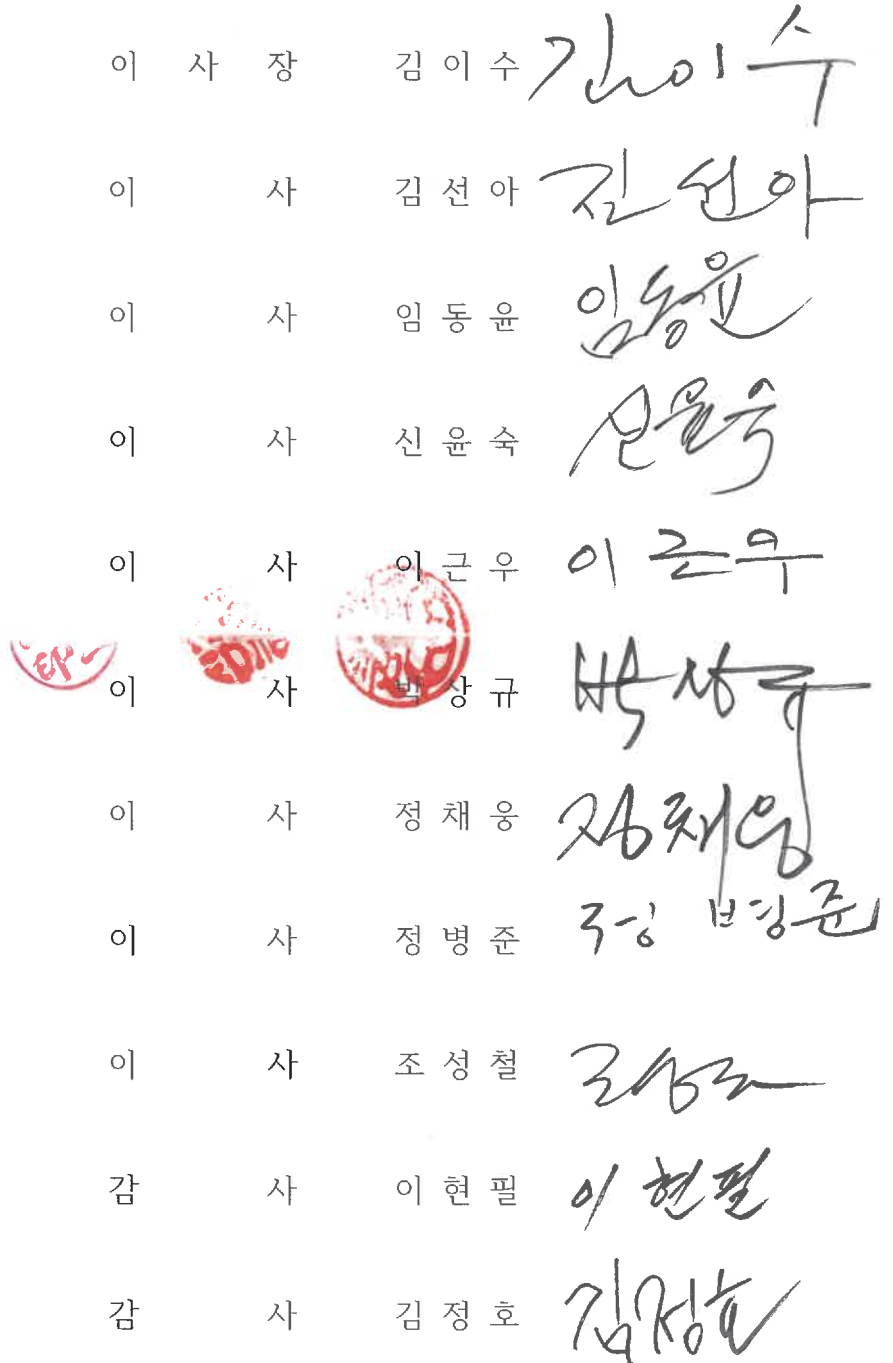 이 사 장 김 이 수 김이수
이 사 김 선 아 김선아
이 사 임 동 윤 임동윤
이 사 신 윤 숙 신윤숙
이 사 이 근 우 이근우
이 사 박 상 규 박상규
이 사 정 채 웅 정채웅
이 사 정 병 준 정병준
이 사 조 성 철
감 사 이 현 필 이현필
감 사 김 정 호 김정호